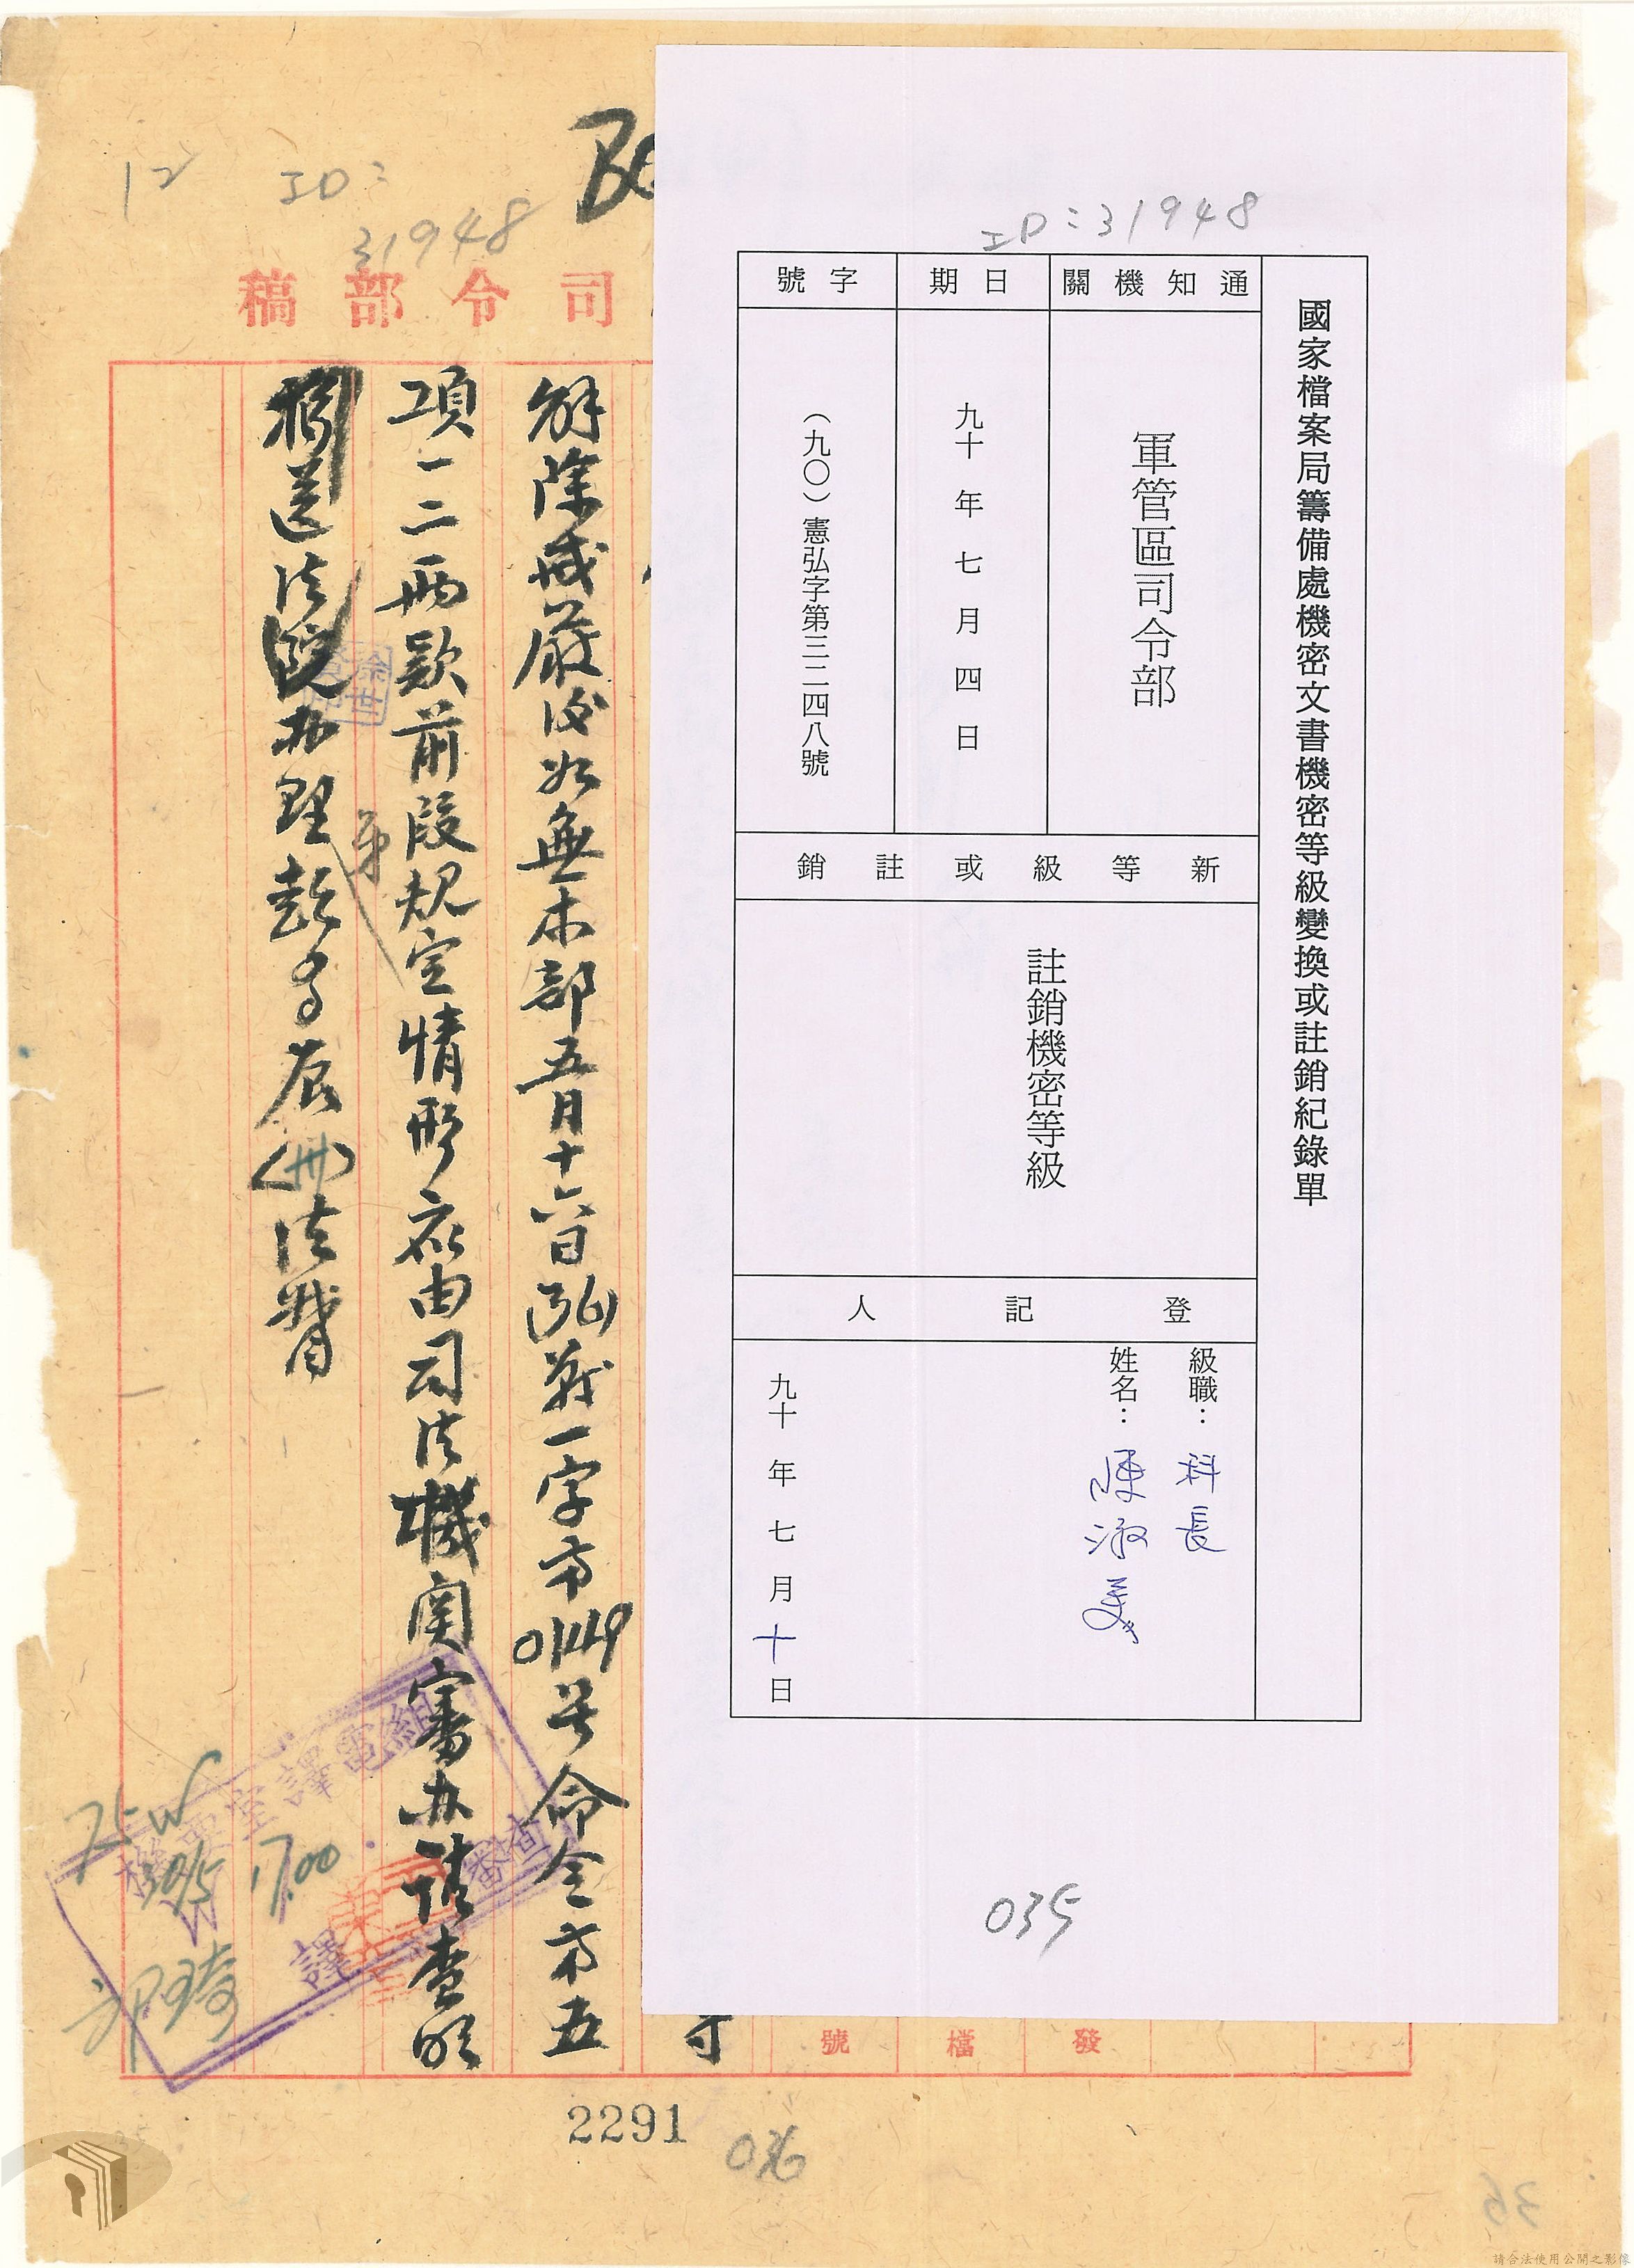 ID：31948
國家檔案局籌備處機密文書機密等級變換或註銷紀錄單
通知機關
軍管區司令部
日期
九十年七月四日
字號
（九〇）憲弘字第三二四八號
新等級或註銷
註銷機密等級
登記人
級職：科長
姓名：陳淑美
九十年七月十日
035
12
ID：
31948
司令部稿
解除戒嚴後如無本部五月十六日(36)蕲一字第0449号命令第五
項一二兩款前段規定情形應由司法機関審办請查明
移送法院办理彭孟辰(卅)法
機要室譯電組
譯
75W
30/5 17.00
郭琦
發
檔
號
2291
036
35
請合法使用公開之影像